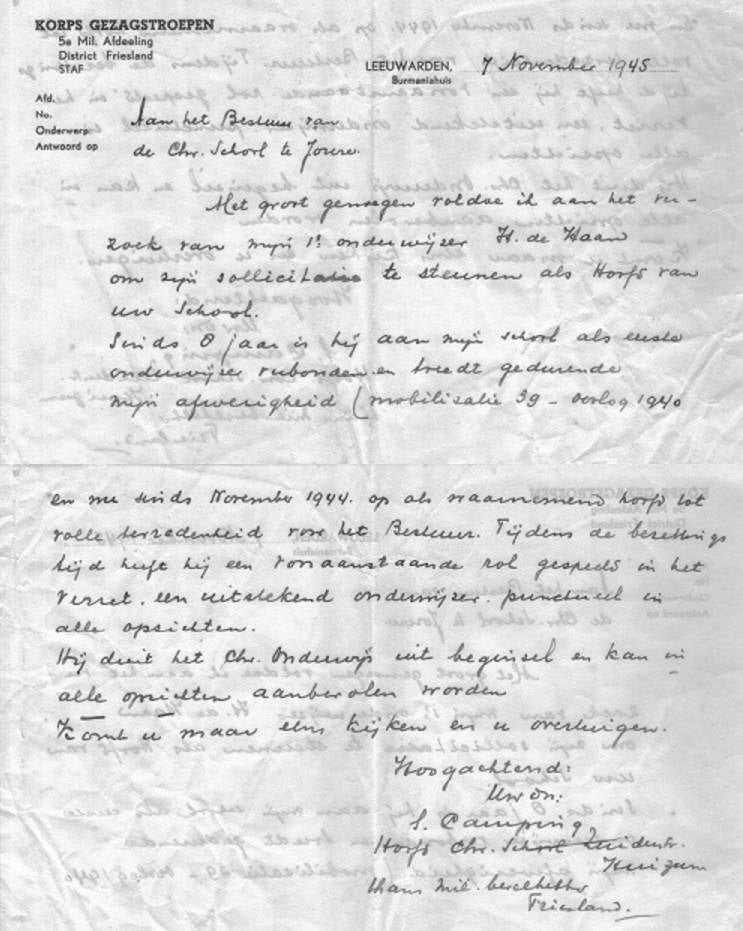 KORPS GEZAGSTROEPEN
5e Mil. Afdeeling
District Friesland
STAF
LEEUWARDEN, 7 November 1945
Burmaniahuis
Afd.
No.
Onderwerp
Antwoord op
Aan het Bestuur van
de Chr. School te Joure.
Met groot genoegen voldoe ik aan het ver-
zoek van mijn 1e onderwijzer H. de Haan
om zijn sollicitatie te steunen als Hoofd van
uw School.
Sinds 8 jaar is hij aan mijn school als eerste
onderwijzer verbonden en treedt gedurende
mijn afwezigheid (mobilisatie 39 - oorlog 1940
en nu sinds November 1944. op als waarnemend hoofd tot
volle tevredenheid voor het Bestuur. Tijdens de bezettings
tijd heeft hij een vooraanstaande rol gespeeld in het
verzet. een uitstekend onderwijzer. punctueel in
alle opzichten.
Hij dient het Chr. Onderwijs uit beginsel en kan in
alle opzichten aanbevolen worden
Komt u maar eens kijken en u overtuigen.
Hoogachtend:
Uw dn:
S. Camping,
Hoofd Chr. School Zuiderstr.
Huizum
thans mil. bevelhebber
Friesland.